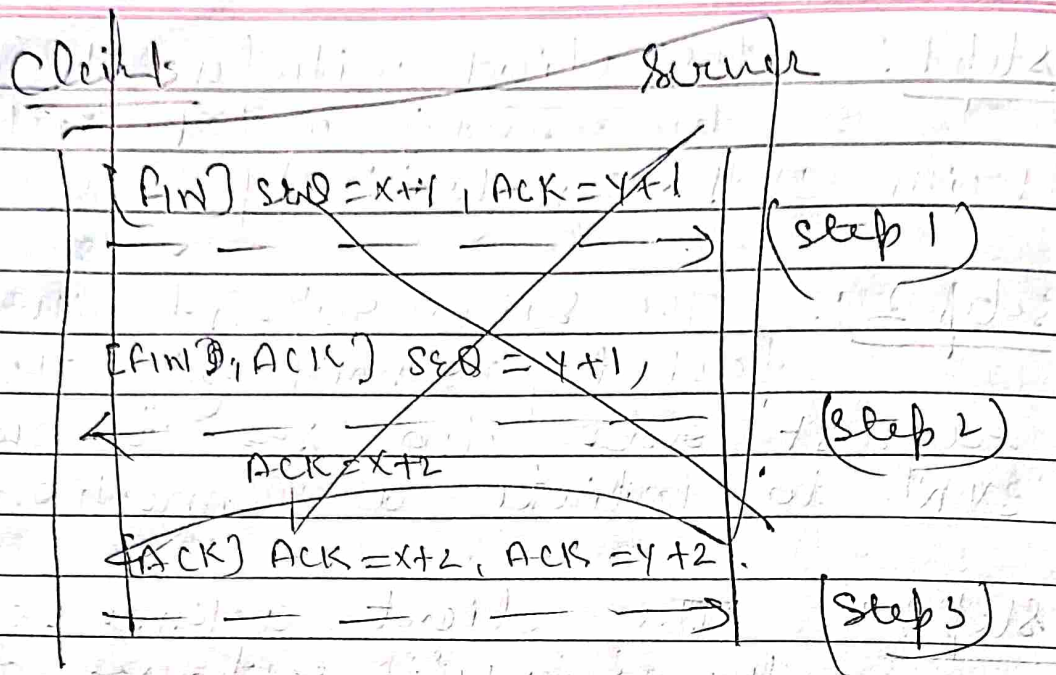 Cleint Server
[FIN] SEQ = X+1, ACK = Y+1
(step 1)
[FIN, ACK] SEQ = Y+1,
(Step 2)
ACK = X+2
[ACK] ACK = X+2, ACK = Y+2.
(Step 3)